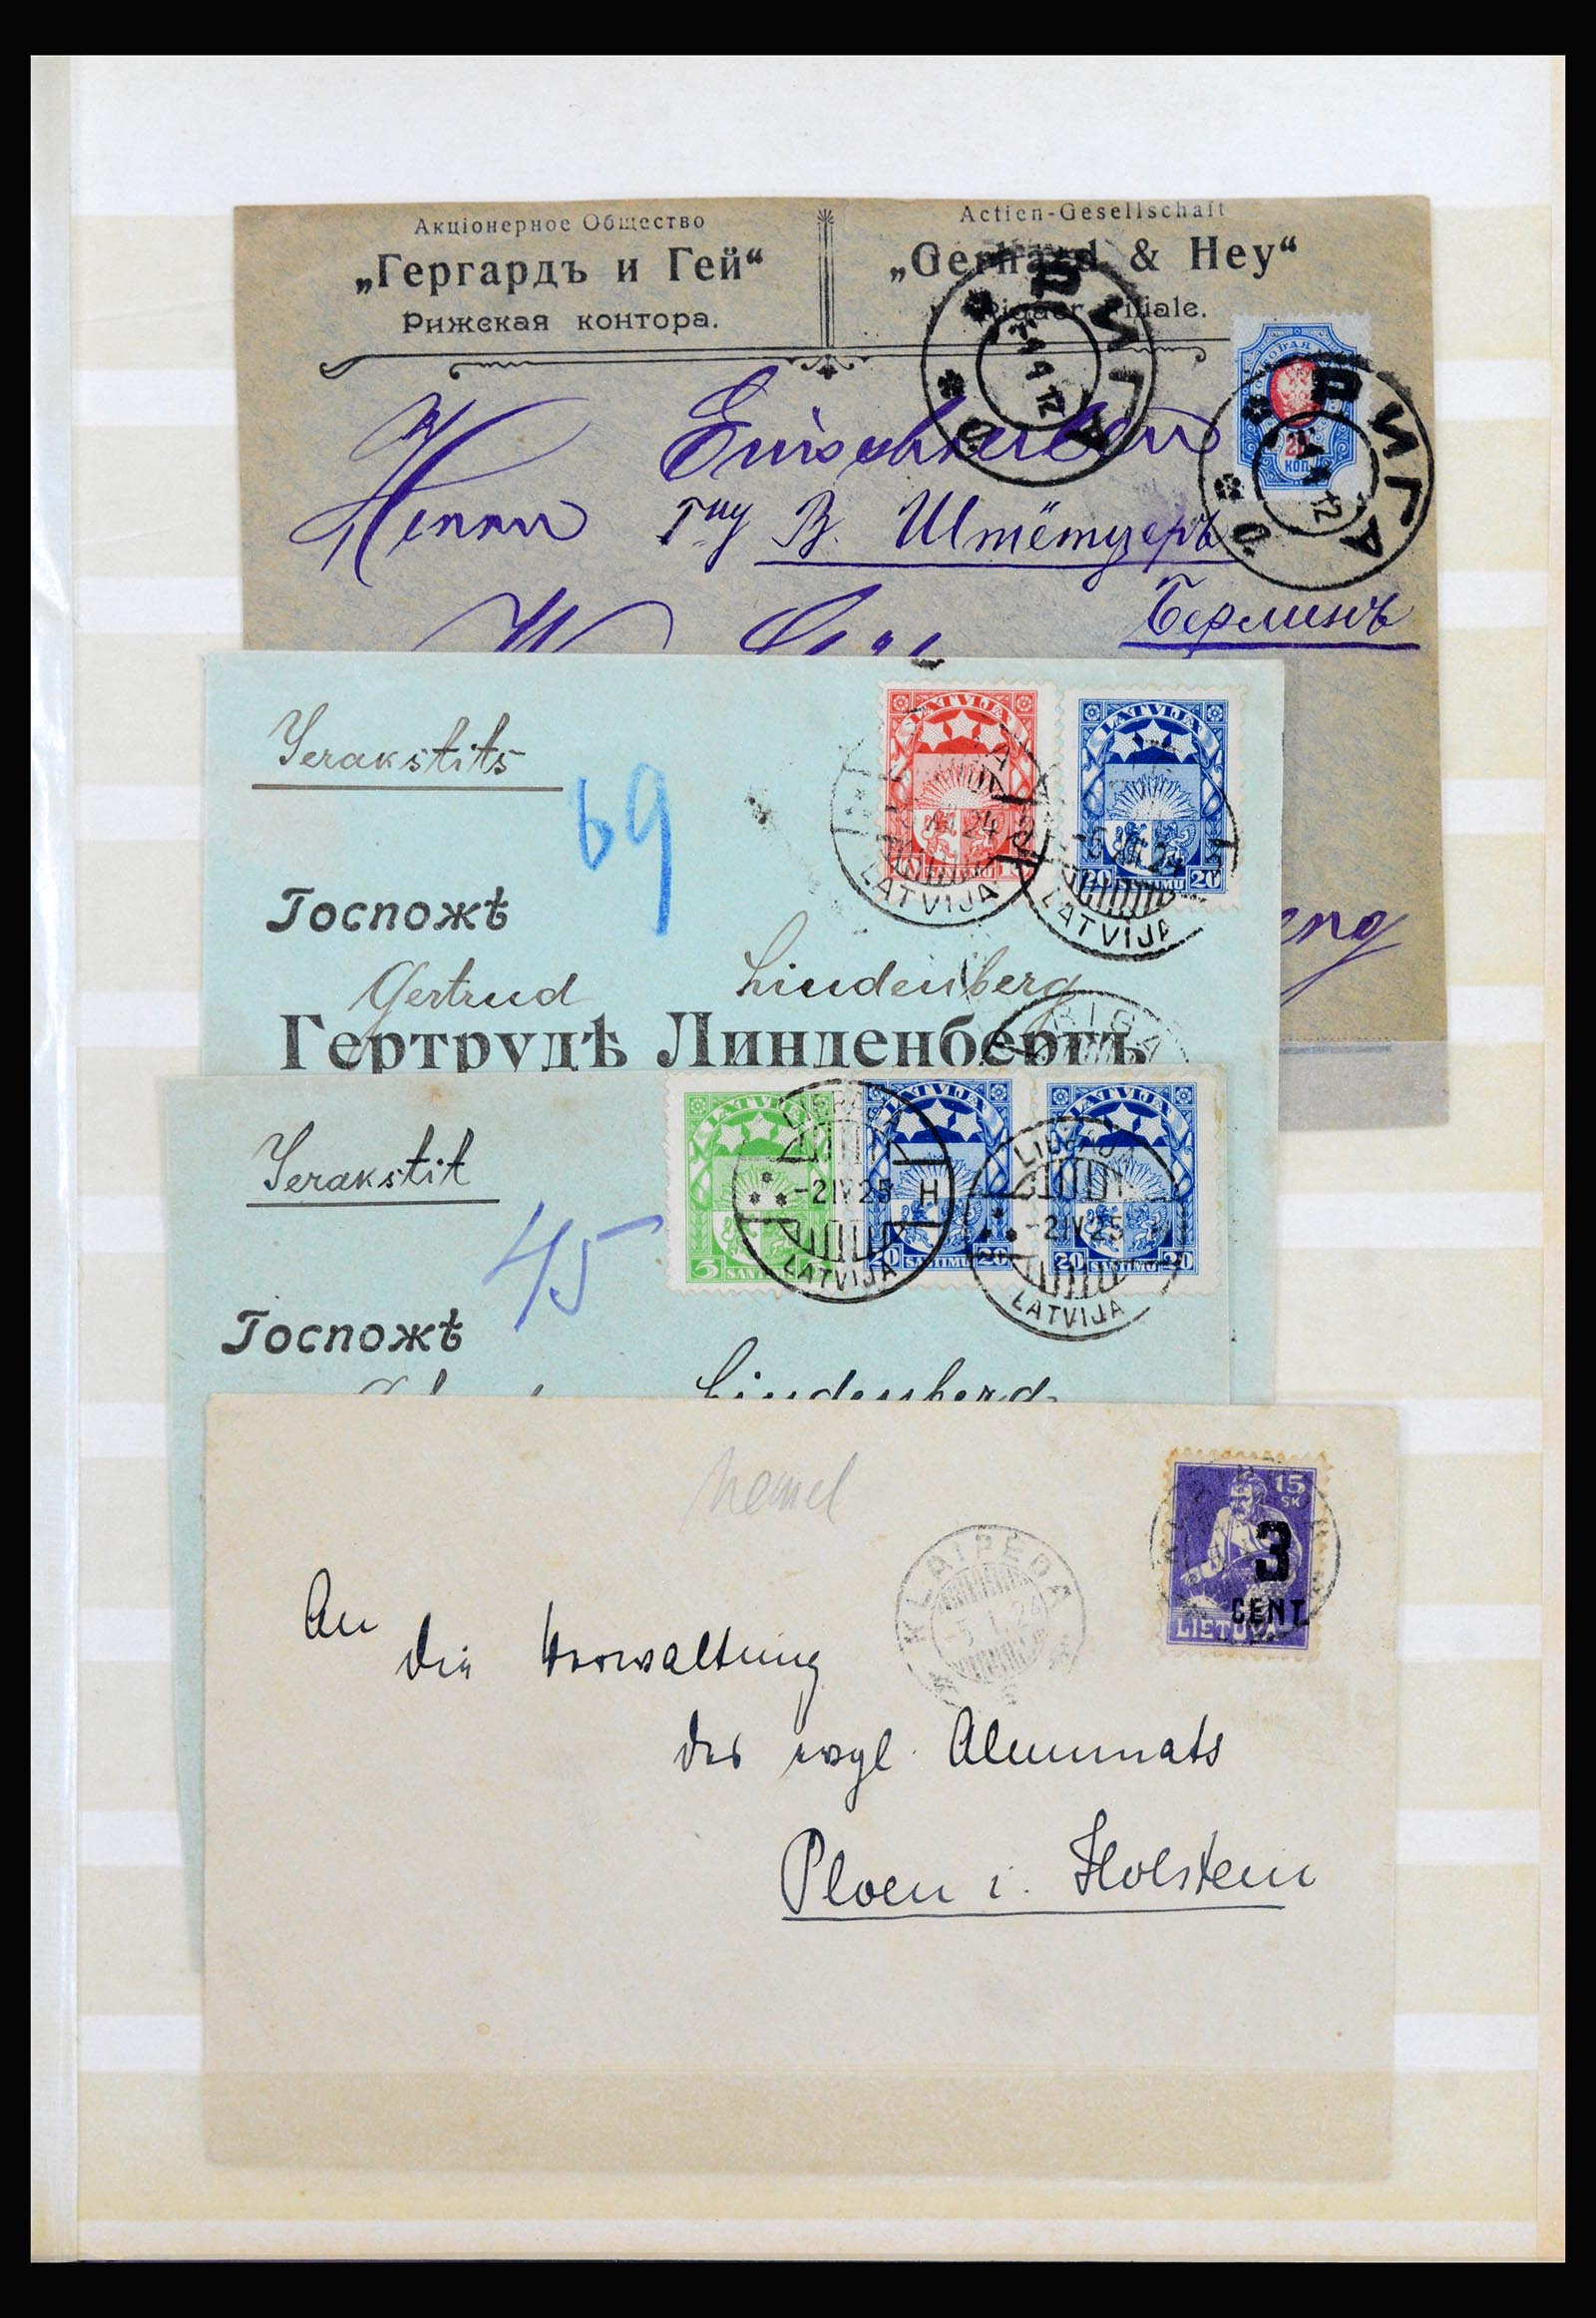 Акціонерное Общество
„Гергардъ и Гей“
Рижская контора.
Actien-Gesellschaft
„Gerhard & Hey“
Rigaer Filiale.
РИГА
4 4 12
РИГА
12
КОП
Einschreiben
Herrn Гну В. Штётцеръ
Берлинъ
Ierakstits
69
LATVIJA
LATVIJA
24
LATVIJA
LATVIJA
20 SANTIMU 20
-5 XII 24
LATVIJA
Госпожѣ
Gertrud Lindenberg
Гертрудѣ Линденбергъ
RIGA
Ierakstit
45
LATVIJA
5 SANTIMU 5
LATVIJA
20 SANTIMU 20
LATVIJA
20 SANTIMU 20
-2 IV 25 H
LATVIJA
LIEPAJA
-2 IV 25
LATVIJA
Госпожѣ
Lindenberg
Memel
15
SK
3
CENT
LIETUVA
KLAIPĖDA
-5. 1. 24
An
die Verwaltung
des evgl. Alumnats
Ploen i. Holstein